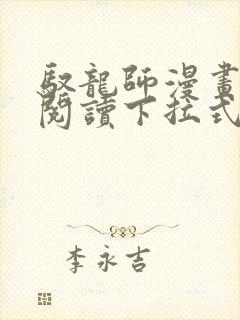 馭龍師漫畫
閱讀下拉式
李永吉